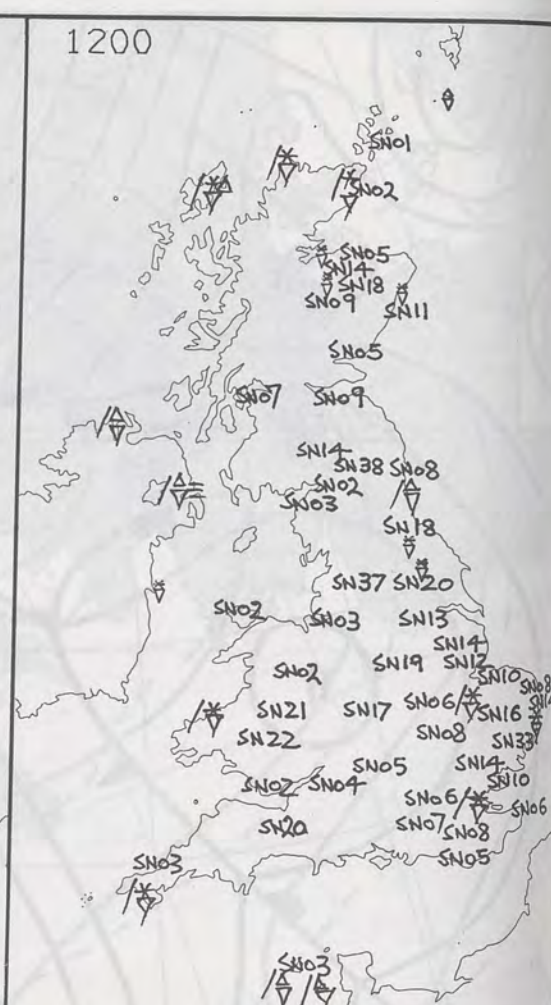 1200
SN01
SN02
SN05
SN14
SN18
SN09
SN11
SN05
SN07
SN09
SN14
SN38
SN08
SN02
SN03
SN18
SN37
SN20
SN02
SN03
SN13
SN14
SN19
SN12
SN02
SN10
SN08
SN06
SN21
SN17
SN16
SN22
SN08
SN33
SN05
SN14
SN02
SN04
SN10
SN06
SN06
SN20
SN07
SN08
SN03
SN05
SN03